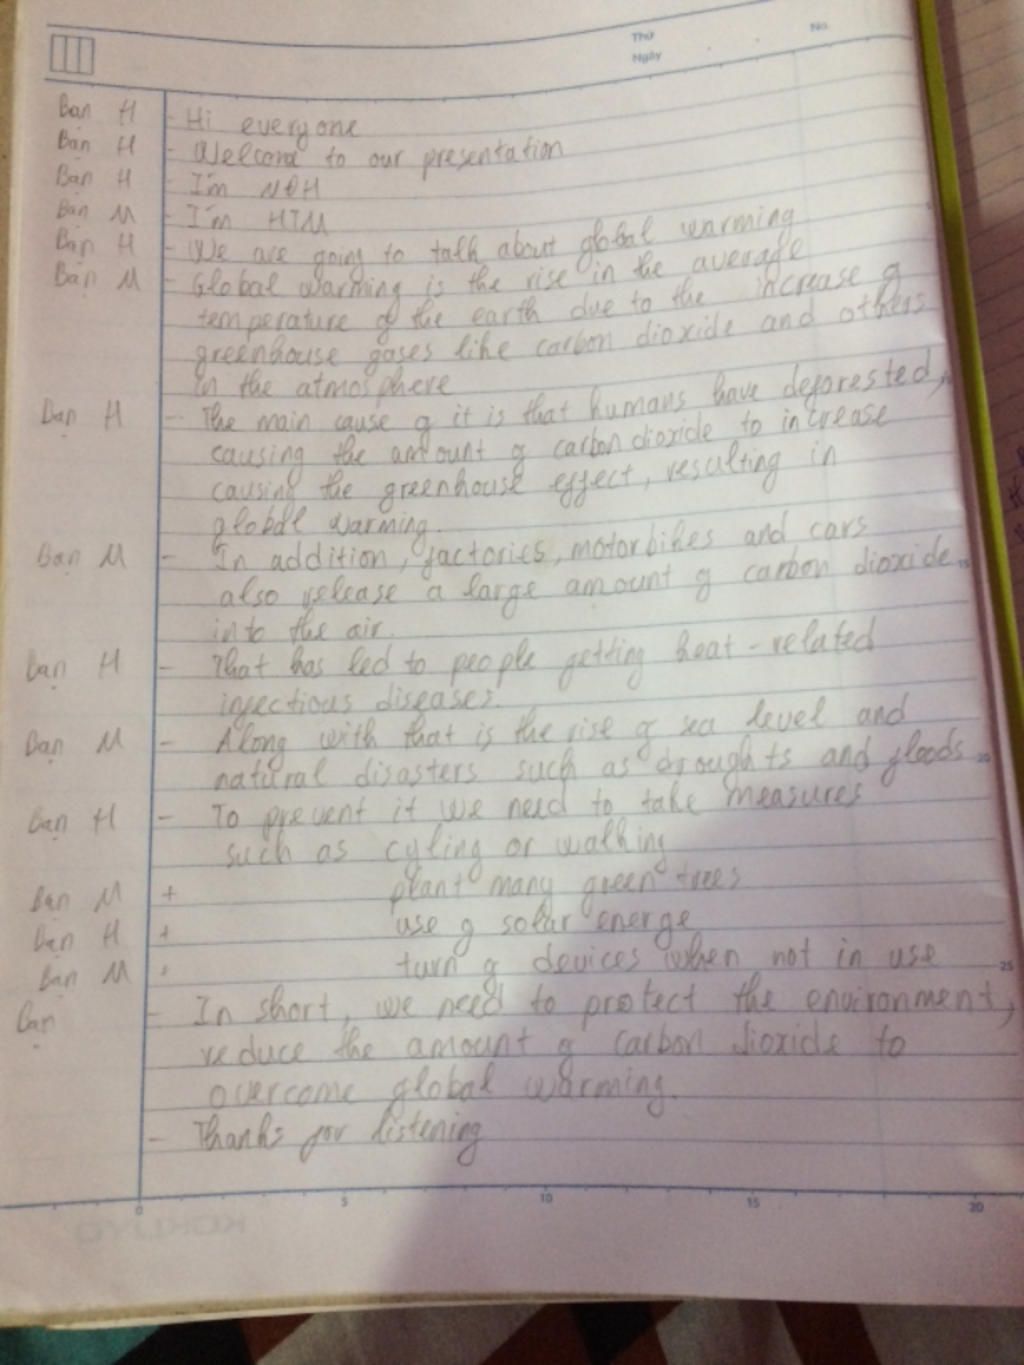 Thứ No.
Ngày
Bạn H - Hi everyone
Bạn H - Welcome to our presentation
Bạn H - I'm NOH
Bạn M - I'm HTM
Bạn H - We are going to talk about global warming
Bạn M - Global warming is the rise in the average
temperature of the earth due to the increase of
greenhouse gases like carbon dioxide and others
in the atmosphere
Bạn H - The main cause of it is that humans have deforested,
causing the amount of carbon dioxide to increase
causing the greenhouse effect, resulting in
global warming.
Bạn M - In addition, factories, motorbikes and cars
also release a large amount of carbon dioxide
into the air.
Bạn H - That has led to people getting heat-related
infectious diseases.
Bạn M - Along with that is the rise of sea level and
natural disasters such as droughts and floods
Bạn H - To prevent it we need to take measures
such as cyling or walking
Bạn M + plant many green trees
Bạn H + use of solar energe
Bạn M + turn of devices when not in use
Bạn - In short, we need to protect the environment,
reduce the amount of carbon dioxide to
overcome global warming.
- Thanks for listening
0 5 10 15 20
KOKUYO